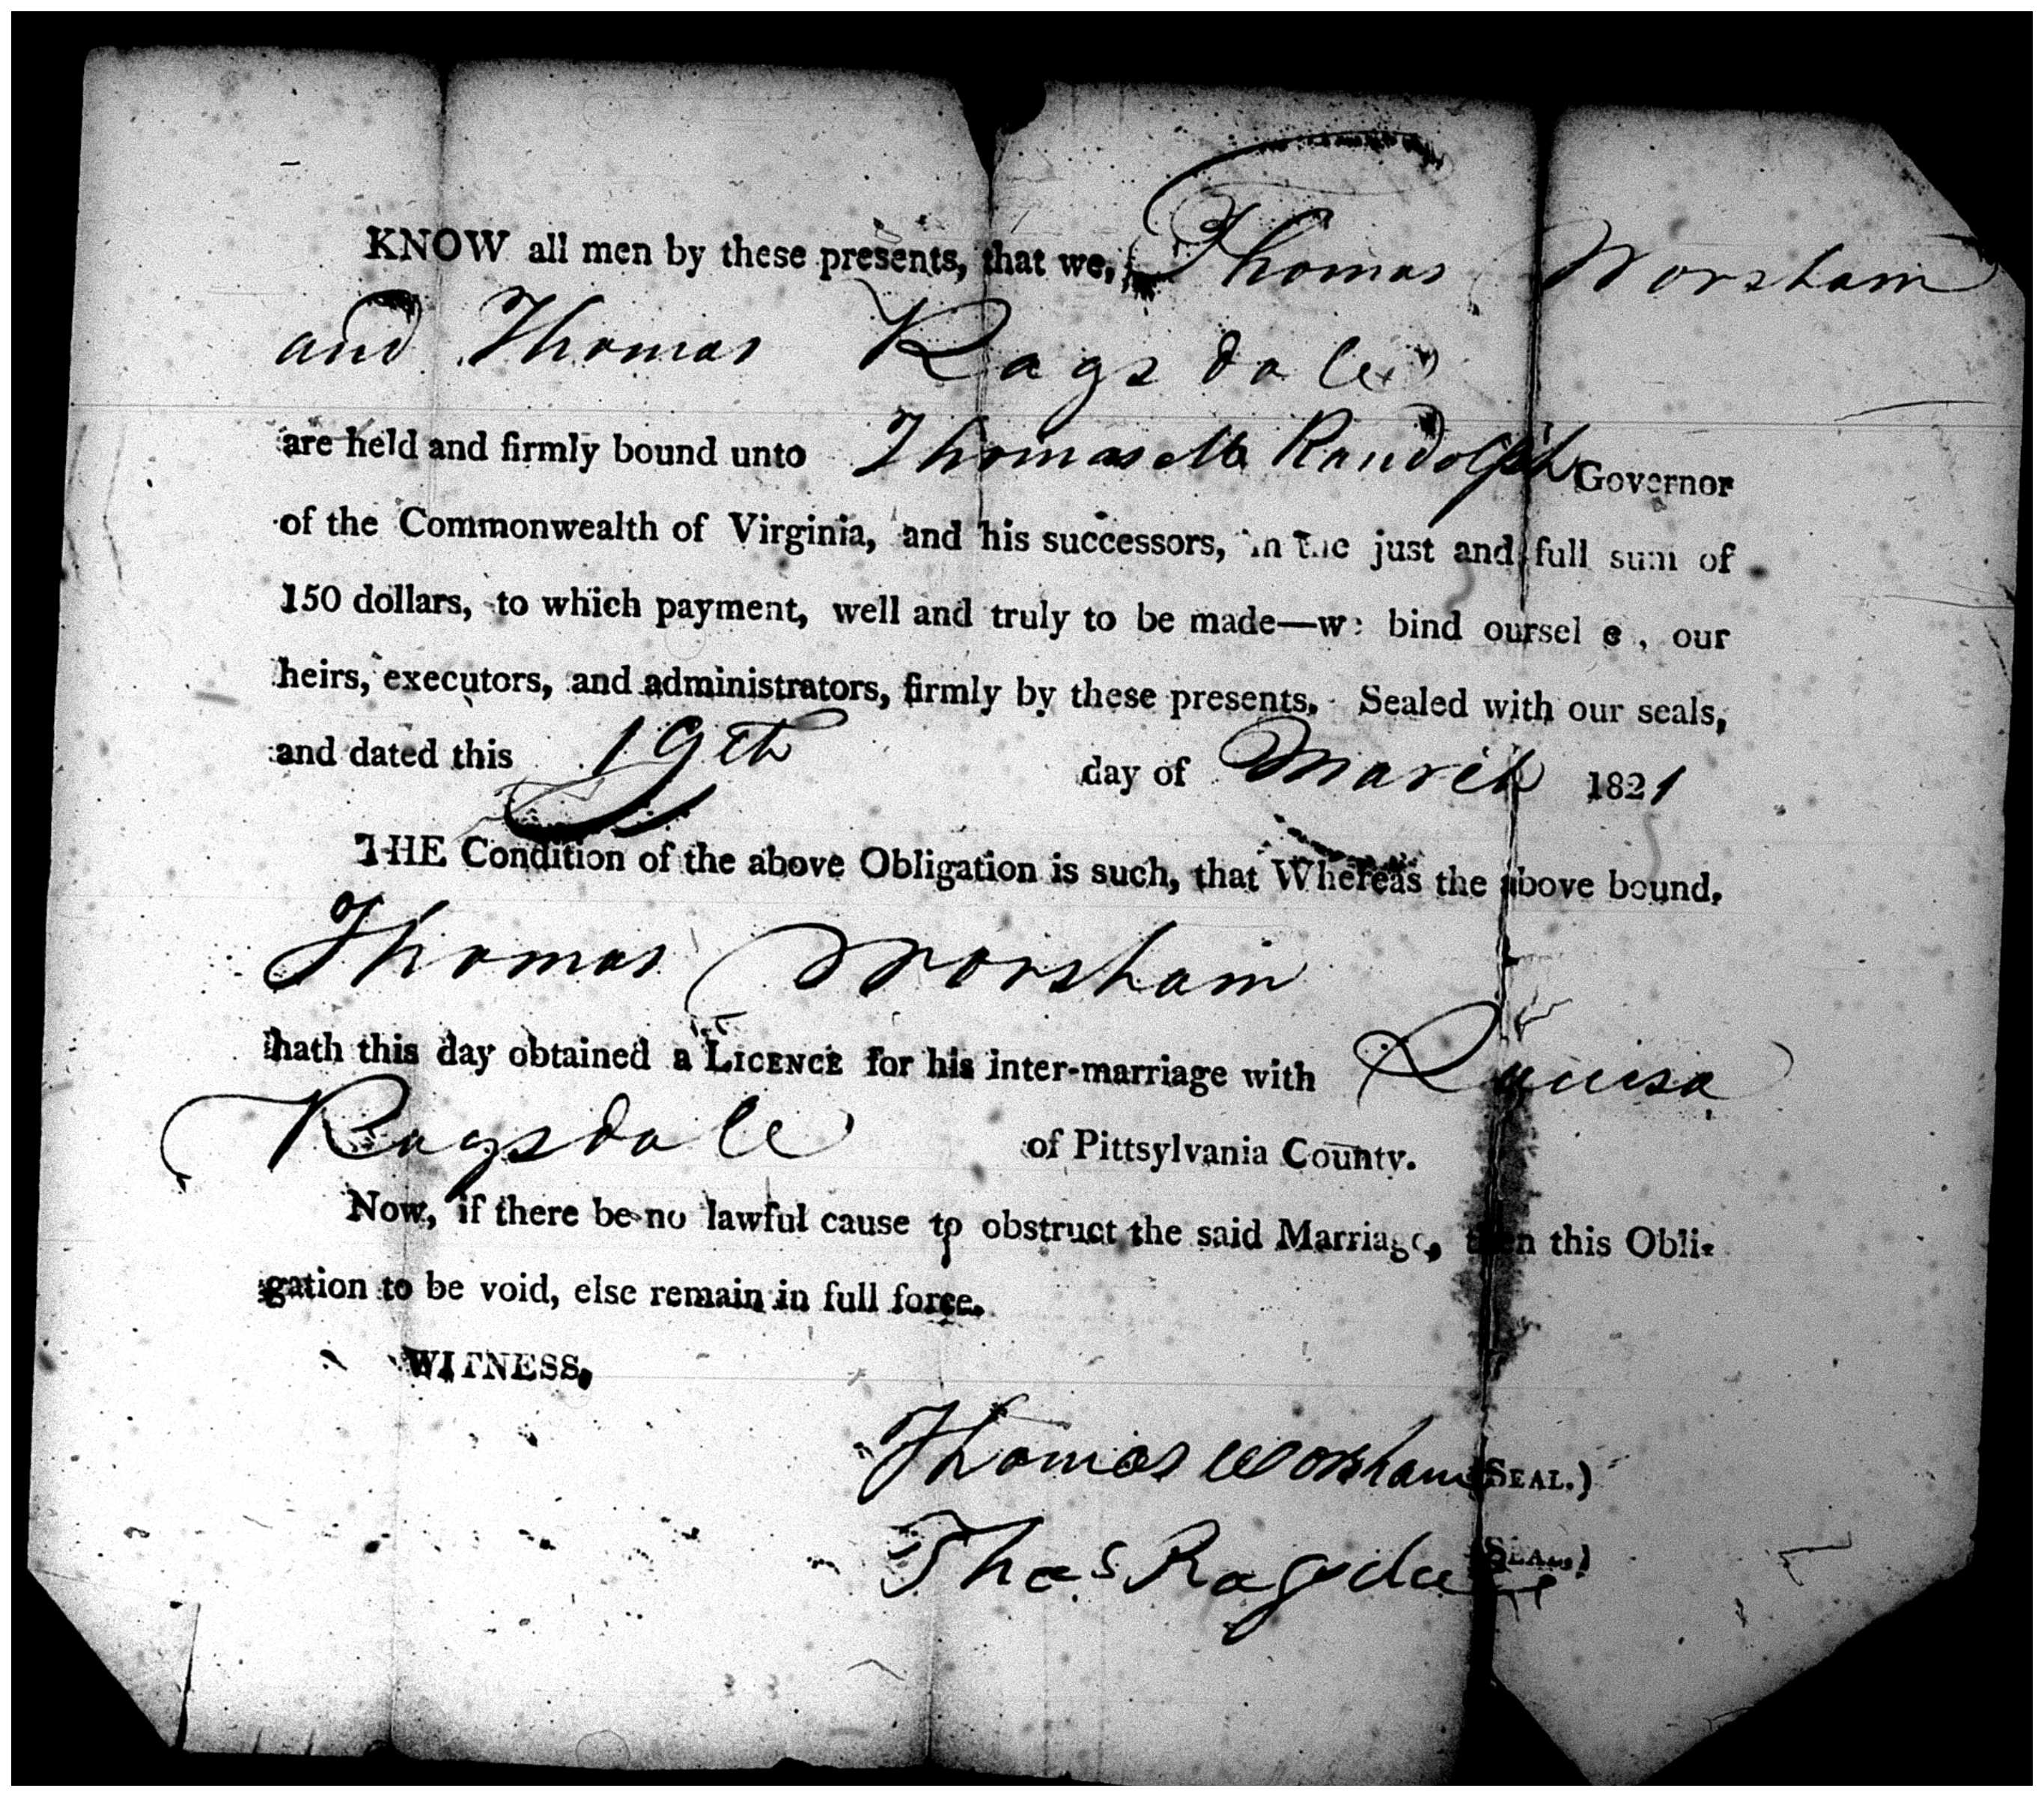 KNOW all men by these presents, that we, Thomas Worsham
and Thomas Ragsdale
are held and firmly bound unto Thomas M Randolph Governor
of the Commonwealth of Virginia, and his successors, in the just and full sum of
150 dollars, to which payment, well and truly to be made—we bind oursel es, our
heirs, executors, and administrators, firmly by these presents. Sealed with our seals,
and dated this 19th day of March 1821
THE Condition of the above Obligation is such, that Whereas the above bound,
Thomas Worsham
hath this day obtained a LICENCE for his inter-marriage with Louisa
Ragsdale of Pittsylvania County.
Now, if there be no lawful cause to obstruct the said Marriage, then this Obli-
gation to be void, else remain in full force.
WITNESS,
Thomas Worsham (SEAL.)
Thos Ragsdale (SEAL.)